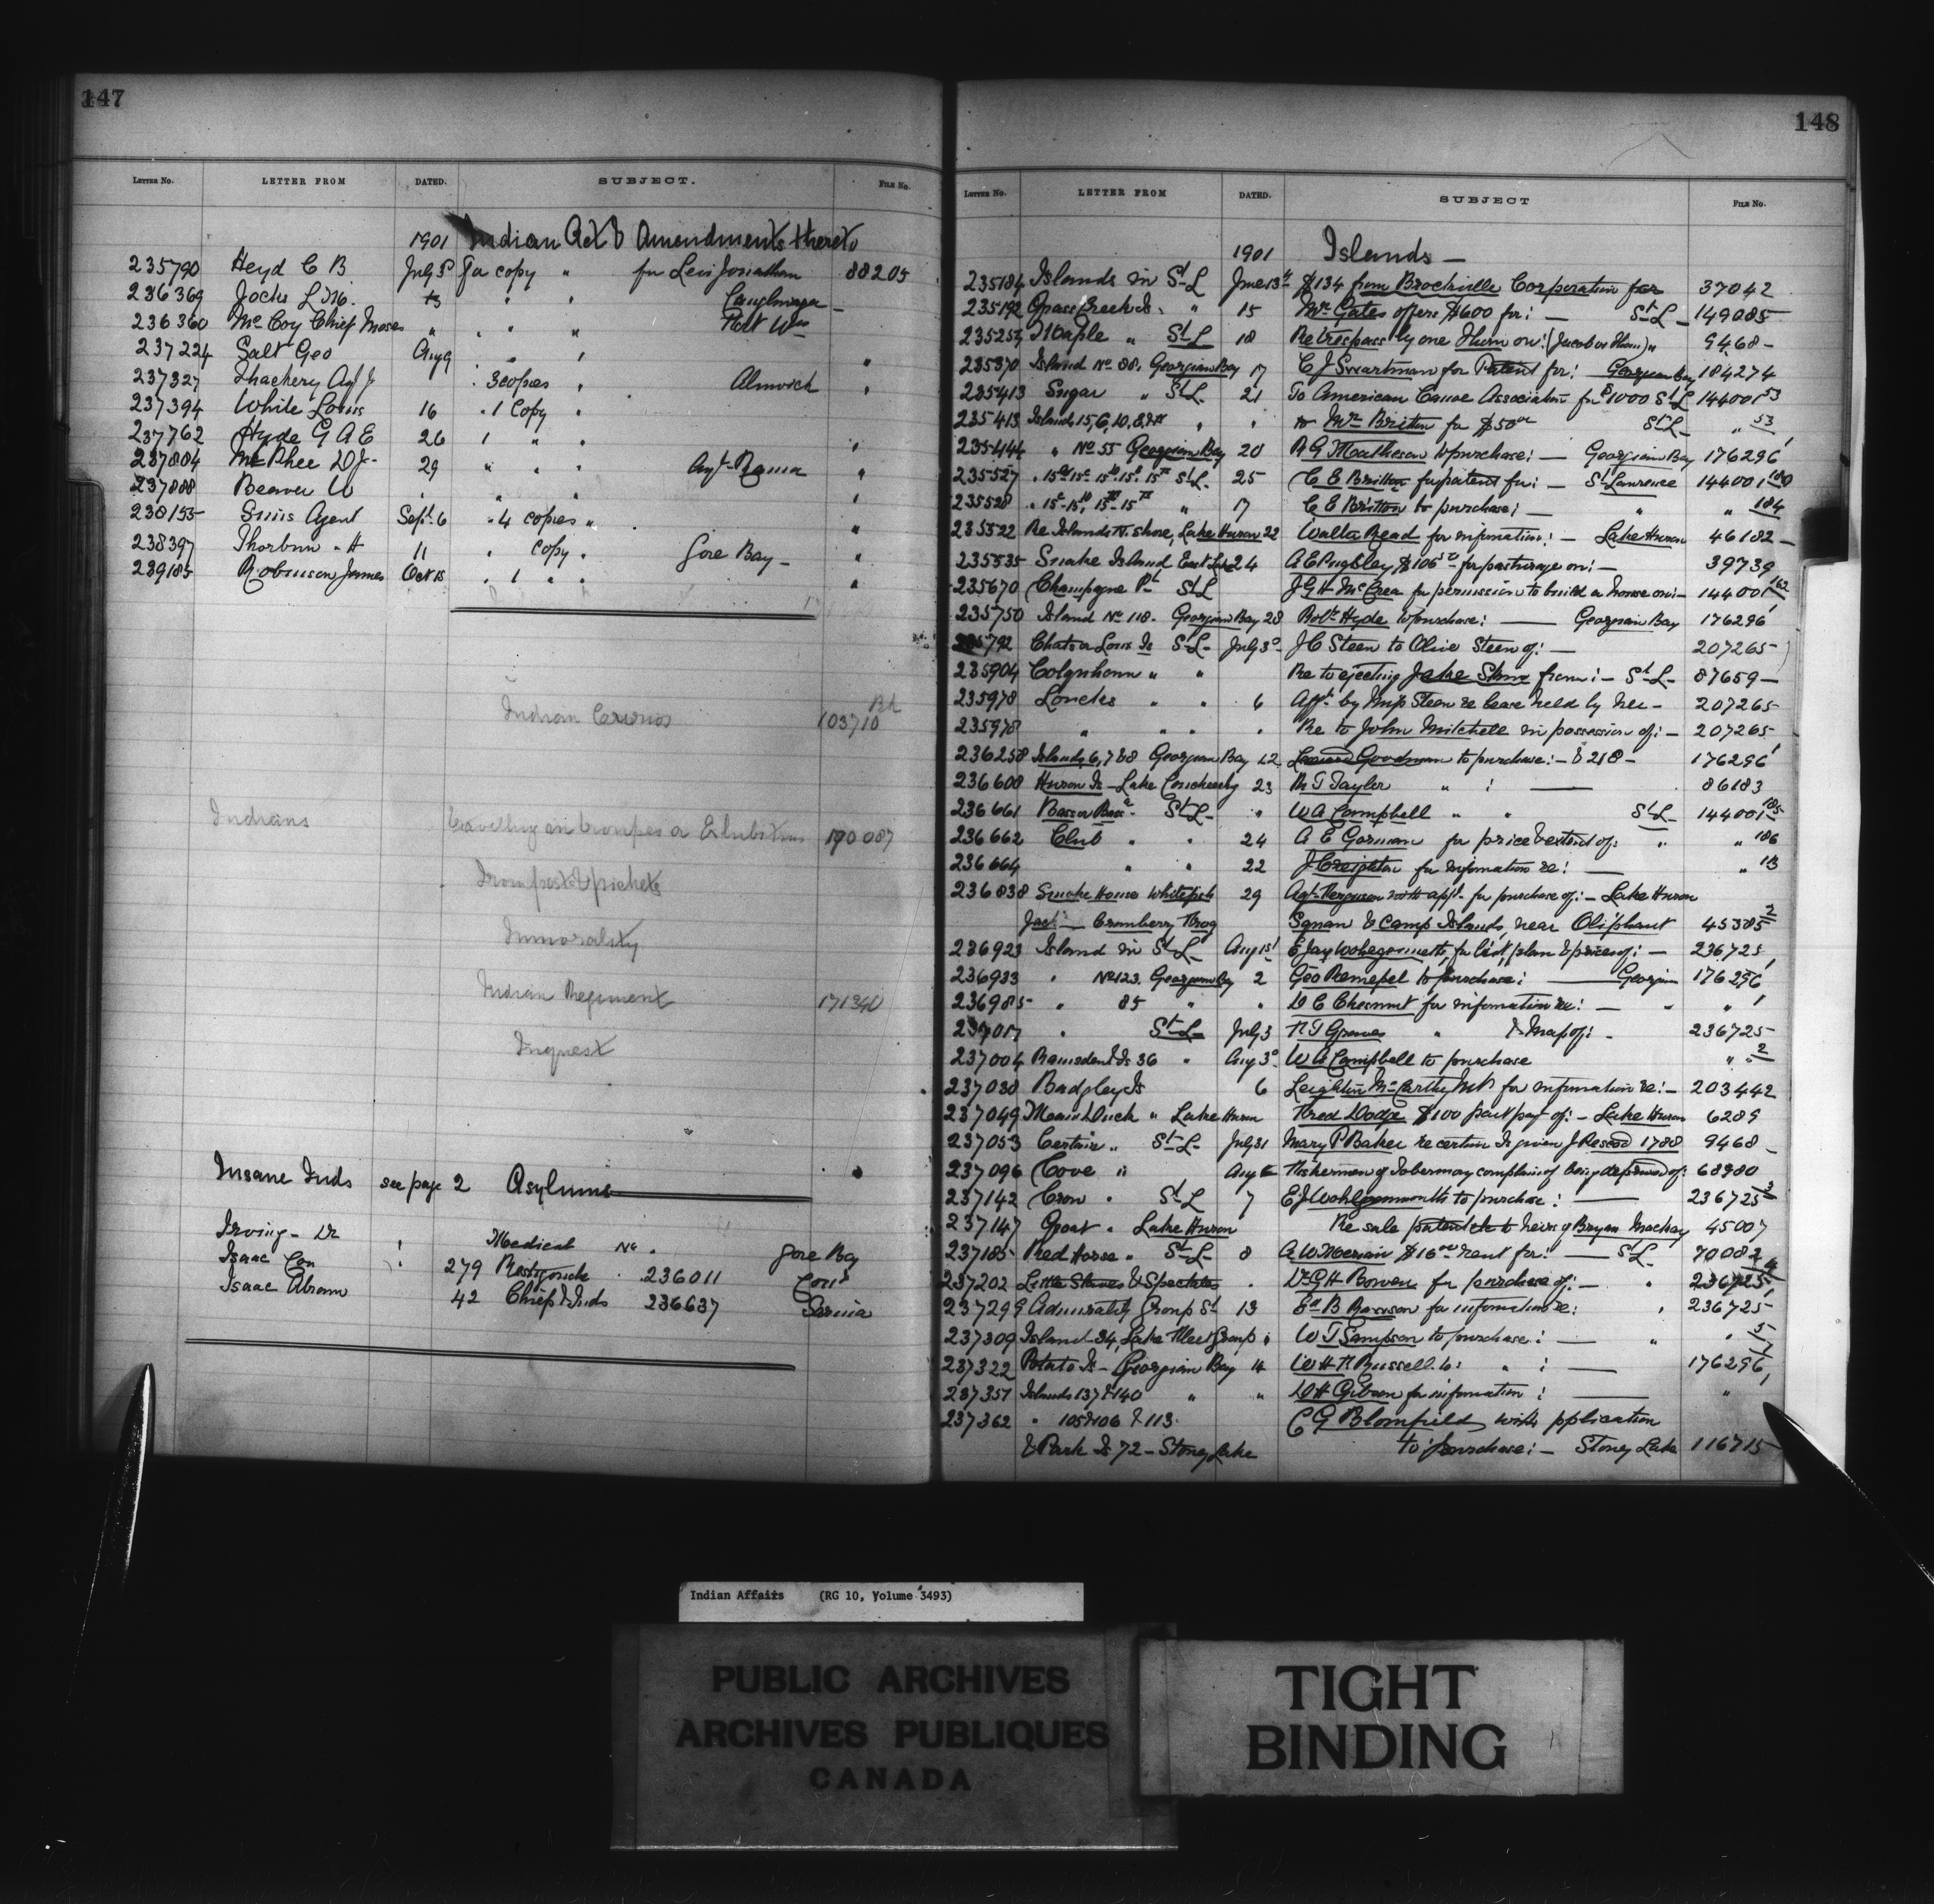 147
LETTER NO. LETTER FROM DATED. SUBJECT. FILE NO.
1901 Indian Act & Amendments thereto
235790 Heyd C B July 3 For copy " for Levi Jonathan 88205
236369 Jocks L " " Caughnawaga
236360 McCoy Chief Moses " " " " Port Wm
237224 Salt Geo Aug 9 " " "
237327 Thackery Agt J " 3 copies " Alnwick "
237394 White Louis 16 " 1 Copy "
237762 Hyde G A E 26 1 " " "
237804 McPhee D J 29 " " " Agt Rama "
237888 Beaver W " " "
238155 Sims Agent Sept 6 " 4 copies " "
238397 Thorburn " H 11 " copy " Gore Bay "
239185 Robinson James Oct 15 " 1 " " "
Indian 103710
Indians Travelling in troupes or Exhibitions 190087
Immorality
Indian Regiment 171340
Inquest
Insane Inds see page 2 Asylums
Irving Dr Medical No. Gore Bay
Isaac Con 279 Restigouche 236011 Con
Isaac Abram 42 Chief & Inds 236637 Sarnia
148
LETTER NO. LETTER FROM DATED. SUBJECT FILE NO.
1901 Islands
235184 Islands in St L June 13 $134 from Brockville Corporation for 37042
235192 Grass Creek Is. " 15 Mr Gates offers $600 for: St L 149085
235257 Maple " St L 18 Re trespass by one Thum on: (Jacob or Thum) " 9468
235370 Island No 88, Georgian Bay 17 C J Swartman for Patent for: Georgian Bay 184274
235413 Sugar " St L 21 To American Canoe Association for $1000 St L 144001 53
235413 Islands 15, 6, 10, 8, " " to Mr Britton for $50 St L " 53
235444 " No 55 Georgian Bay 20 R G Matheson to purchase: Georgian Bay 176296
235527 " St L 25 C E Britton for patent for: St Lawrence 144001 180
235528 " " 17 C E Britton to purchase: " " 184
235522 Re Islands N. Shore, Lake Huron 22 Walter Read for information: Lake Huron 46182
235535 Snake Island East Lake 24 A E Pugsley $106 for pasturage on: 39739
235670 Champagne Pt St L J G H McCrea for permission to build a house on: 144001 182
235750 Island No 118. Georgian Bay 28 Robt Hyde to purchase: Georgian Bay 176296
235792 Is St L July 3 J C Steen to Olive Steen of: 207265
235904 " " Re to ejecting Jake from: St L 87659
235978 Loucks " " 6 Afft by Miss Steen re lease held by her 207265
235978 " " " " Re to John Mitchell in possession of: 207265
236258 Islands 6, 7 & 8 Georgian Bay 12 Goodman to purchase: & 218 176296
236608 Huron Is Lake Couchiching 23 R T Taylor " : 86183
236661 St L " W A Campbell " " St L 144001 185
236662 Club " " 24 A E Gorman for price & extent of: " " 186
236664 " " 22 J Creighton for information re: " 113
236838 Smoke House Whitefish 29 Agt Ferguson with appl. for purchase of: Lake Huron
Jack Cranberry Frog Squaw & Camp Islands, near Oliphant 45385 2
236923 Island in St L Aug 1st E Jay Wohlgemuth for list plan & prices of: 236725
236933 " No 123. Georgian Bay 2 Geo Rempel to purchase: Georgian 176296
236985 " 85 " " D C Chesnut for information re: " "
237017 " St L July 3 F T Graves " & Map of: 236725
237004 Ramsden Is 36 " Aug 3 W A Campbell to purchase " 2
237030 Badgley Is 6 Leighton McCarthy MP for information re: 203442
237049 Main Duck " Lake Huron Fred Dodge $100 part pay of: Lake Huron 6289
237053 Certain " St L July 31 Mary P Baker re certain Is given J 1788 9468
237096 Cove " Aug Fishermen of Tobermory complain of being deprived of: 68980
237142 Crow " St L 7 E J Wohlgemuth to purchase: 236725 3
237147 Goat " Lake Huron Re sale patent to heirs of Bryan Mackay 45007
237185 Red Horse " St L 8 A W Merriam $16 rent for: St L 70082
237202 Little Slaves & Spectacles " Dr G H Bowen for purchase of: " 236725 4
237299 Admiralty Group St 13 Ed B Harrison for information re: " 236725
237309 Island 34, Lake Fleet Group " W T Sampson to purchase: " " 5
237322 Potato Is Georgian Bay 14 W H F Russell to: " : 176296
237351 Islands 137 & 140 " " D H Gibson for information: "
237362 " 105 & 106 & 113. C G Blomfield with pplication
& Park Is 72 Stoney Lake to purchase: Stoney Lake 116715
Indian Affairs (RG 10, Volume 3493)
PUBLIC ARCHIVES
ARCHIVES PUBLIQUES
CANADA
TIGHT
BINDING